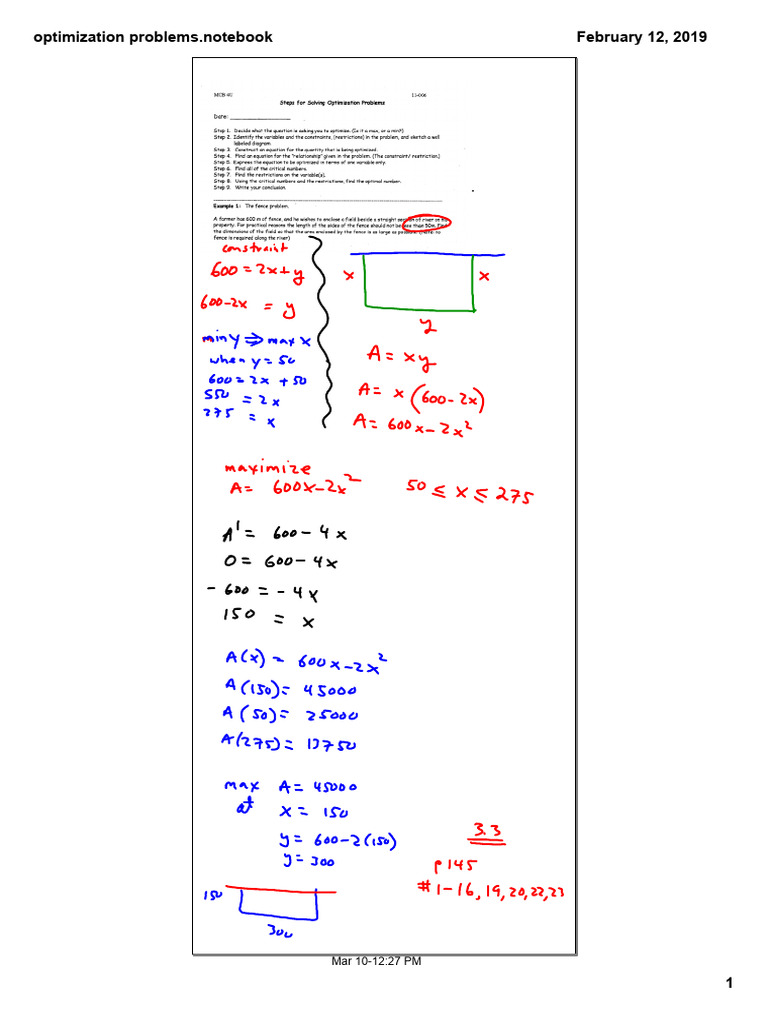 optimization problems.notebook
February 12, 2019
MCB 4U
Steps for Solving Optimization Problems
Date:
Step 1. Decide what the question is asking you to optimize. (Is it a max, or a min?)
Step 2. Identify the variables and the constraints, (restrictions) in the problem, and sketch a well
labeled diagram.
Step 3. Construct an equation for the quantity that is being optimized.
Step 4. Find an equation for the "relationship" given in the problem. (The constraint/ restriction.)
Step 5. Express the equation to be optimized in terms of one variable only.
Step 6. Find all of the critical numbers.
Step 7. Find the restrictions on the variable(s).
Step 8. Using the critical numbers and the restrictions, find the optimal number.
Step 9. Write your conclusion.
Example 1: The fence problem.
A farmer has 600 m of fence, and he wishes to enclose a field beside a straight section of river on his
property. For practical reasons the length of the sides of the fence should not be less than 50m. Find
the dimensions of the field so that the area enclosed by the fence is as large as possible. (Note: no
fence is required along the river)
constraint
600 = 2x + y
600-2x = y
min y ⇒ max x
when y = 50
600 = 2x + 50
550 = 2x
275 = x
x
x
y
A = xy
A = x (600 - 2x)
A = 600x - 2x²
maximize
A = 600x - 2x²
50 ≤ x ≤ 275
A' = 600 - 4x
0 = 600 - 4x
- 600 = - 4x
150 = x
A(x) = 600x - 2x²
A(150) = 45000
A(50) = 25000
A(275) = 13750
max A = 45000
at x = 150
y = 600 - 2(150)
y = 300
150
300
3.3
p 145
# 1-16, 19, 20, 22, 23
Mar 10-12:27 PM
1